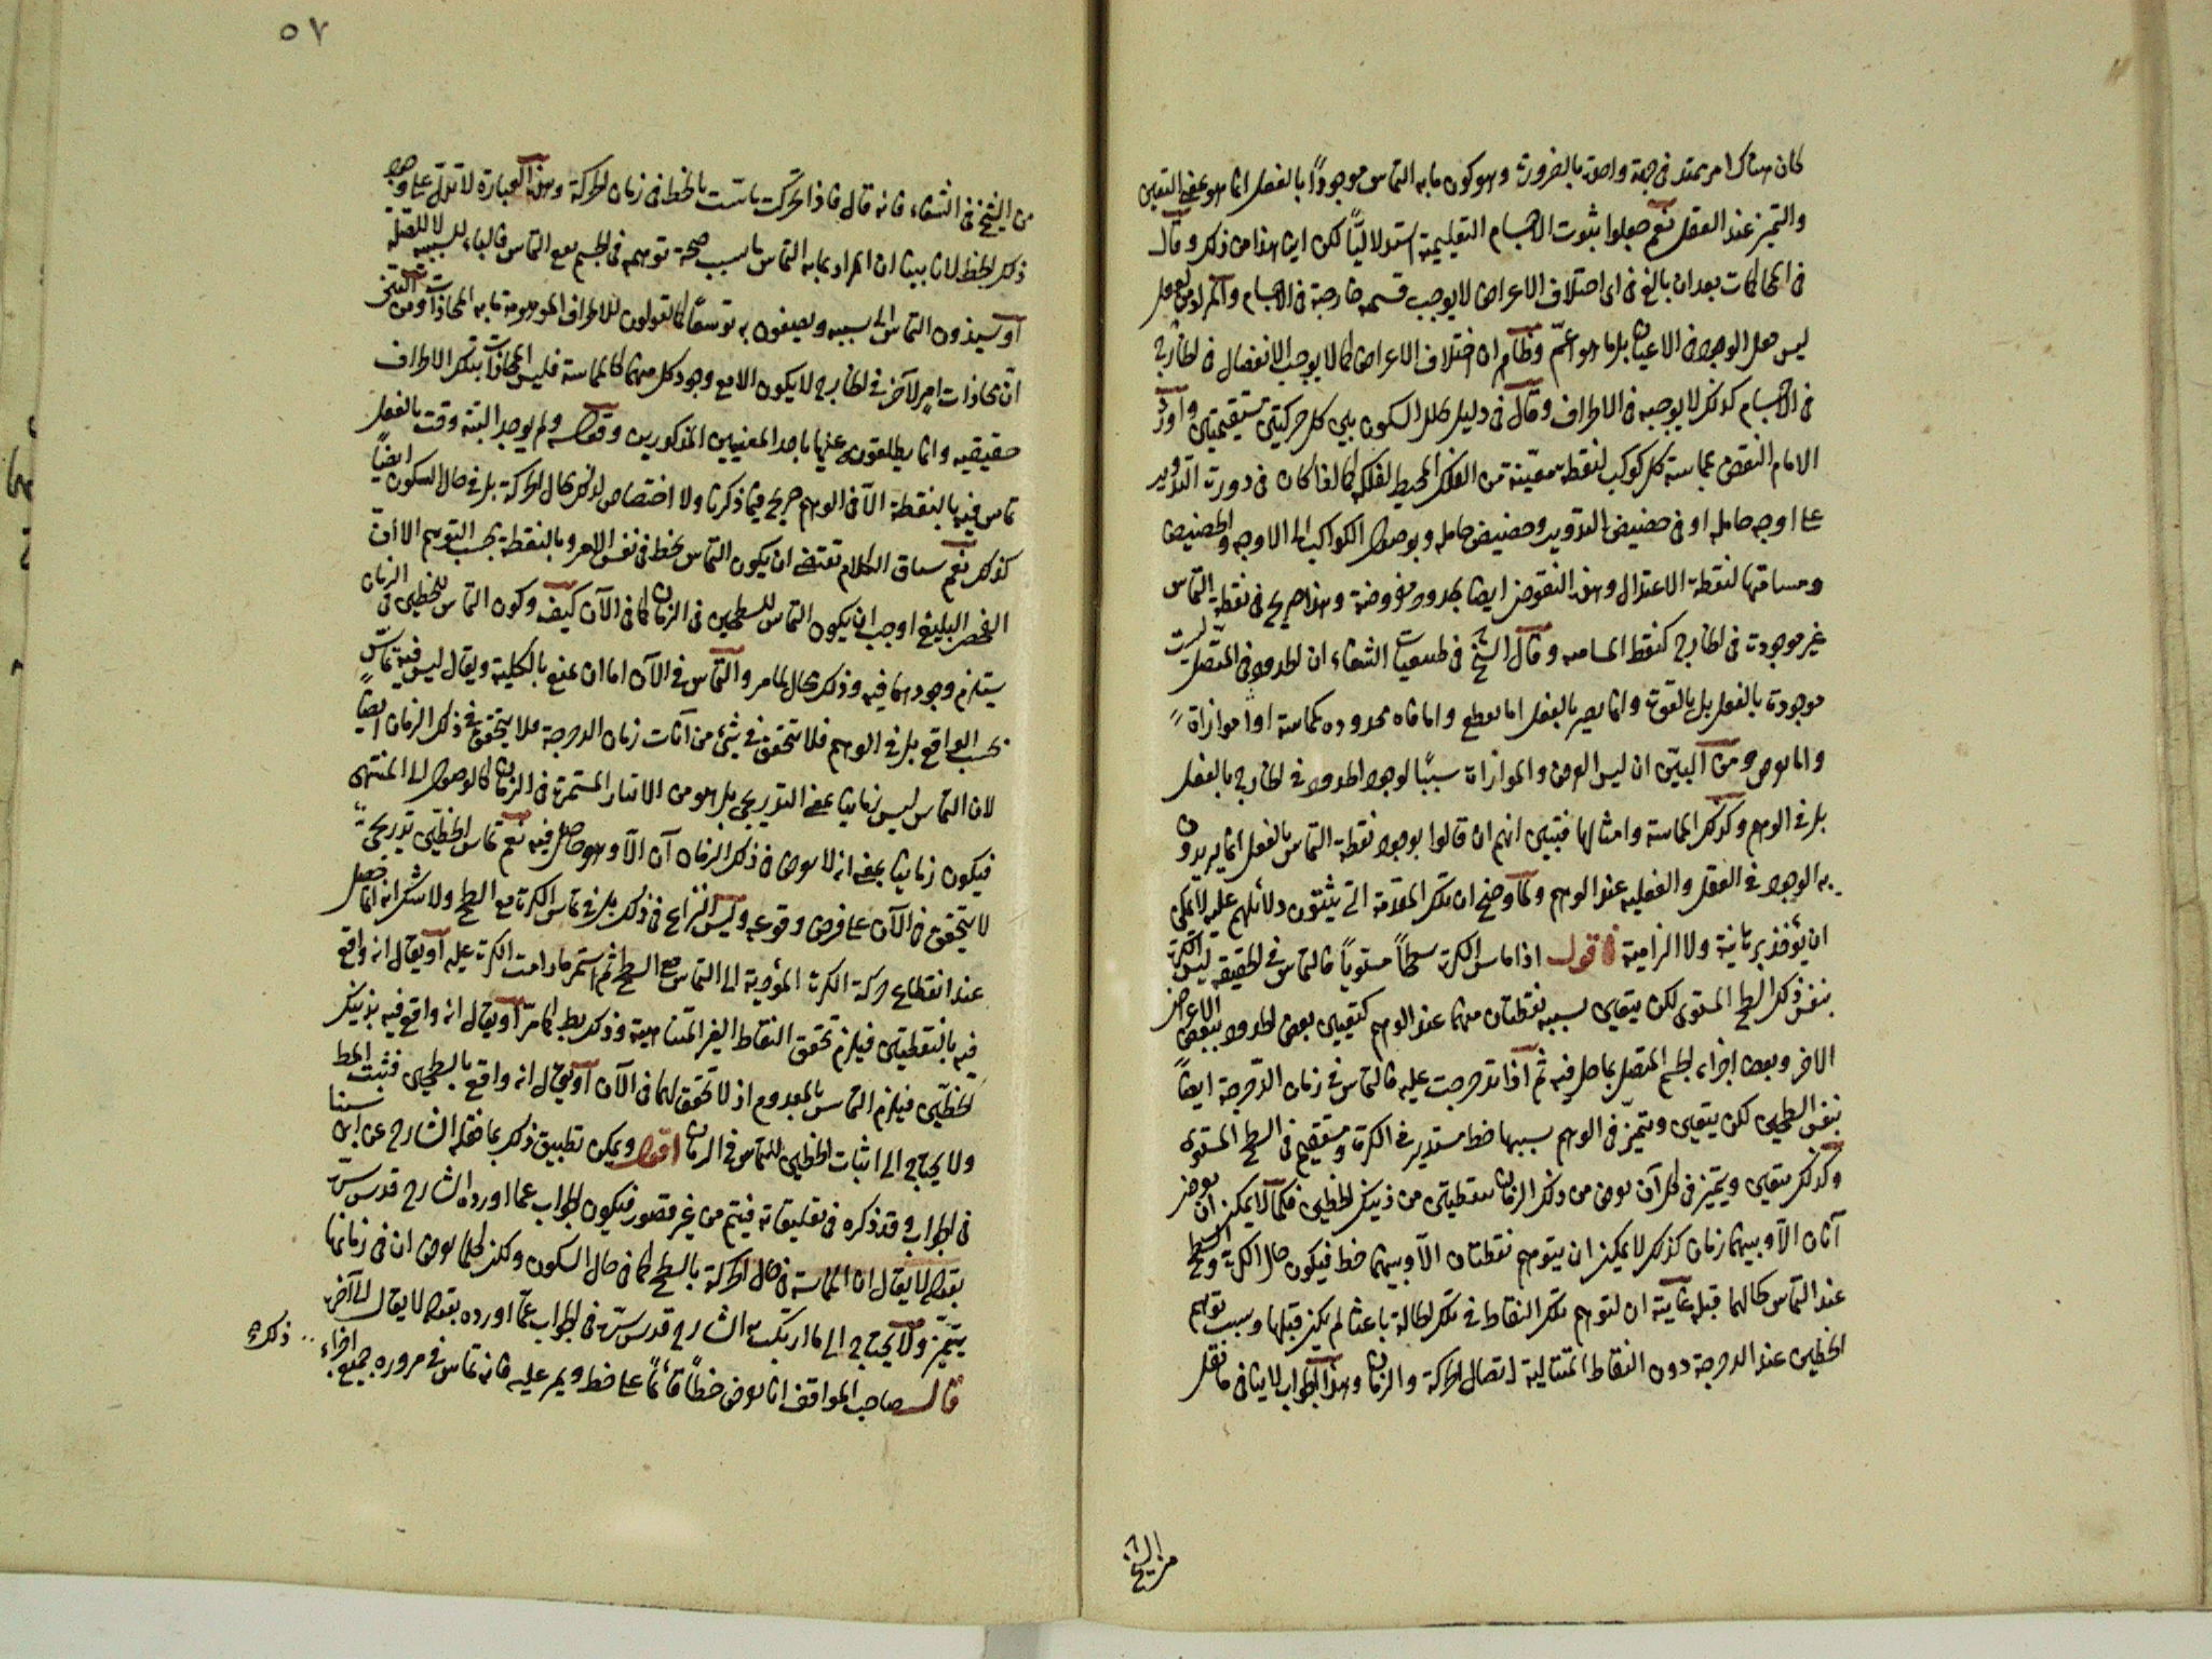 كان هناك امر يمتد فى جهة واحدة بالضرورة وهو كون ما به التماس موجوداً بالفعل انما هو بمعنى التعين
والتميز عند العقل نعم جعلوا ثبوت الاجسام التعليمية استدلالياً لكن اين هذا من ذلك وقال
فى المحاكمات بعد ان بالغ فى ان اختلاف الاعراض لا يوجب قسمة خارجة فى الاجسام والمراد من الفعل
ليس هو الوجود فى الاعيان بل ما هو اعم وظاهر ان اختلاف الاعراض كما لا يوجب الانفصال فى الخارج
فى الاجسام كذلك لا يوجبه فى الاطراف وقال فى دليل تخلل السكون بين كل حركتين مستقيمتين واورد
الامام النقض بمماسة كل كوكب لنقطة معينة من الفلك المحيط لفلكه كما اذا كان فى دورة التدوير
على اوج حامله او فى حضيض التدوير وحضيض حامله وبوصول الكواكب الى الاوج والحضيض
ومسامتها لنقطة الاعتدال وهذه النقوض ايضا بحدود مفروضة وهذا صريح فى نقطة التماس
غير موجودة فى الخارج كنقطة المسامتة وقال الشيخ فى طبيعيات الشفاء ان الحدود فى المتصل ليست
موجودة بالفعل بل بالقوة وانما يصير بالفعل اما بقطع واما محدودة كمماسة او موازاة
واما بعرض ومن البين ان ليس العرض والموازاة سبباً لوجود الحدود فى الخارج بالفعل
بل فى الوهم وكذلك المماسة وامثالها فتبين انهم ان قالوا بوجود نقطة التماس بالفعل انما يريدون
به الوجود فى العقل والفعلية عند الوهم ولما وضح ان تلك المقدمة التى يبتنون دلائلهم عليه لا يمكن
ان يؤخذ برهانية ولا الزامية فاقول اذا ماس الكرة سطحاً مستوياً فالتماس فى الحقيقة ليس الكرة
بنفس ذلك السطح المستوى لكن يتعين بسببه نقطتان منهما عند الوهم كتعيين بعض الحدود ببعض الاعراض
الاخر وبعض اجزاء الجسم المتصل بما حل فيه ثم اذا تدحرجت عليه فالتماس فى زمان الدحرجة ايضاً
بنفس السطحين لكن يتعين ويتميز فى الوهم بسببها خط مستدير فى الكرة ومستقيم فى السطح المستوى
وكذلك يتعين ويتميز فى كل آن يعرض من ذلك الزمان نقطتين من ذينك الخطين فكما لا يمكن ان يعرض
آنان الا وبينهما زمان كذلك لا يمكن ان يتوهم نقطتان الا وبينهما خط فيكون حال الكرة والسطح
عند التماس كحالهما قبله غايته ان لتوهم تلك النقاط فى تلك الحالة باعثا لم يكن قبلها وسبب توهم
الخطين عند الدحرجة دون النقاط المتتالية اتصال الحركة والزمان وهذا الجواب لا ينافى ما نقل
من الشيخ
٥٧
من الشيخ فى الشفاء فانه قال فاذا تحركت ماست بالخط فى زمان الحركة وهذه العبارة لا تدل على وجود
ذلك الخط لانا بينا ان المراد بما به التماس ما سبب صحة توهمه فى الجسم مع التماس فالباء للسببية لا للصلة
او يسندون التماس الى سببه ويصفون به توسعاً كما يقولون للاطراف الموهومة ما به المحاذاة ومن المتعين
ان محاذات امر لآخر فى الخارج لا يكون الا مع وجود كل منهما كالمماسة فليس المحاذات بتلك الاطراف
حقيقيه وانما يطلقونه عليها باحد المعنيين المذكورين وقوله ولم يوجد البتة وقت بالفعل
تماس فيه بالنقطة الا فى الوهم صريح فيما ذكرنا ولا اختصاص لذلك بحال الحركة بل فى حال السكون ايضاً
كذلك نعم سياق الكلام يقتضى ان يكون التماس بخط فى نفس الامر وبالنقطة بحسب التوهم الا ان
الفحص البليغ اوجب ان يكون التماس للسطحين فى الزمان كما فى الآن كيف وكون التماس للخطين فى الزمان
يستلزم وجودهما فيه وذلك محال لما مر والتماس فى الآن اما ان يمنع بالكلية ويقال ليس فيه تماس
بحسب الواقع بل فى الوهم فلا يتحقق فى شئ من آنات زمان الدحرجة ولا يتحقق فى ذلك الزمان ايضاً
لان التماس ليس زمانيا بمعنى التدريجى بل هو من الآنيات المستمرة فى الزمان كالوصول الى المنتهى
فيكون زمانيا بمعنى انه لا يعرض فى ذلك الزمان آن الا وهو حاصل فيه نعم تماس الخطين تدريجى
لا يتحقق فى الآن على فرض وقوعه وليس النزاع فى ذلك بل فى تماس الكرة مع السطح ولا شك انه انما حصل
عند انقطاع حركة الكرة المؤدية الى التماس مع السطح ثم استمر ما دامت الكرة عليه او يقال انه واقع
فيه بالنقطتين فيلزم تحقق النقاط الغير المتناهية وذلك بط لما مر او يقال انه واقع فيه بذينك
الخطين فيلزم التماس بالمعدوم اذ لا تحقق لهما فى الآن او يقال انه واقع بالسطحين فثبت المط
ولا يحتاج الى اثبات الخطين للتماس فى الزمان اقول ويمكن تطبيق ذلك بما نقله الشارح عن ابن سينا
فى الجواب وقد ذكره فى تعليقاته فيتم من غير قصور فيكون الجواب عما اورده الشارح قدس سره
بقوله لا يقال ان المماسة فى حال الحركة بالسطح كما فى حال السكون ولكن كلما يعرض ان فى زمانها
يتميز ولا يحتاج الى ما ارتكب الشارح قدس سره فى الجواب عما اورده بقوله لا يقال الى آخره
قال صاحب المواقف انا نفرض خطاً قائماً على خط ويمر عليه فانه تماس فى مروره جميع اجزاء
ذلك